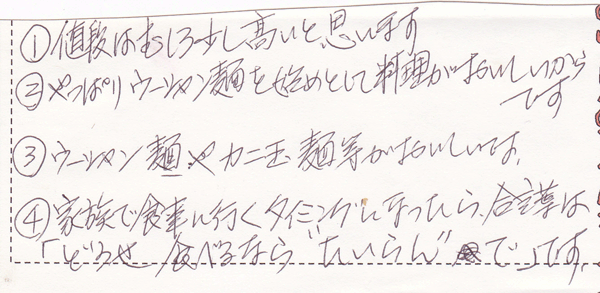 ①値段はむしろ少し高いと思います
②やっぱりウーシャン麺を始めとして料理がおいしいから
です
③ウーシャン麺やカニ玉麺等がおいしいです。
④家族で食事に行くタイミングになったら、合言葉は
「どうせ食べるなら"たいらん"で」です。